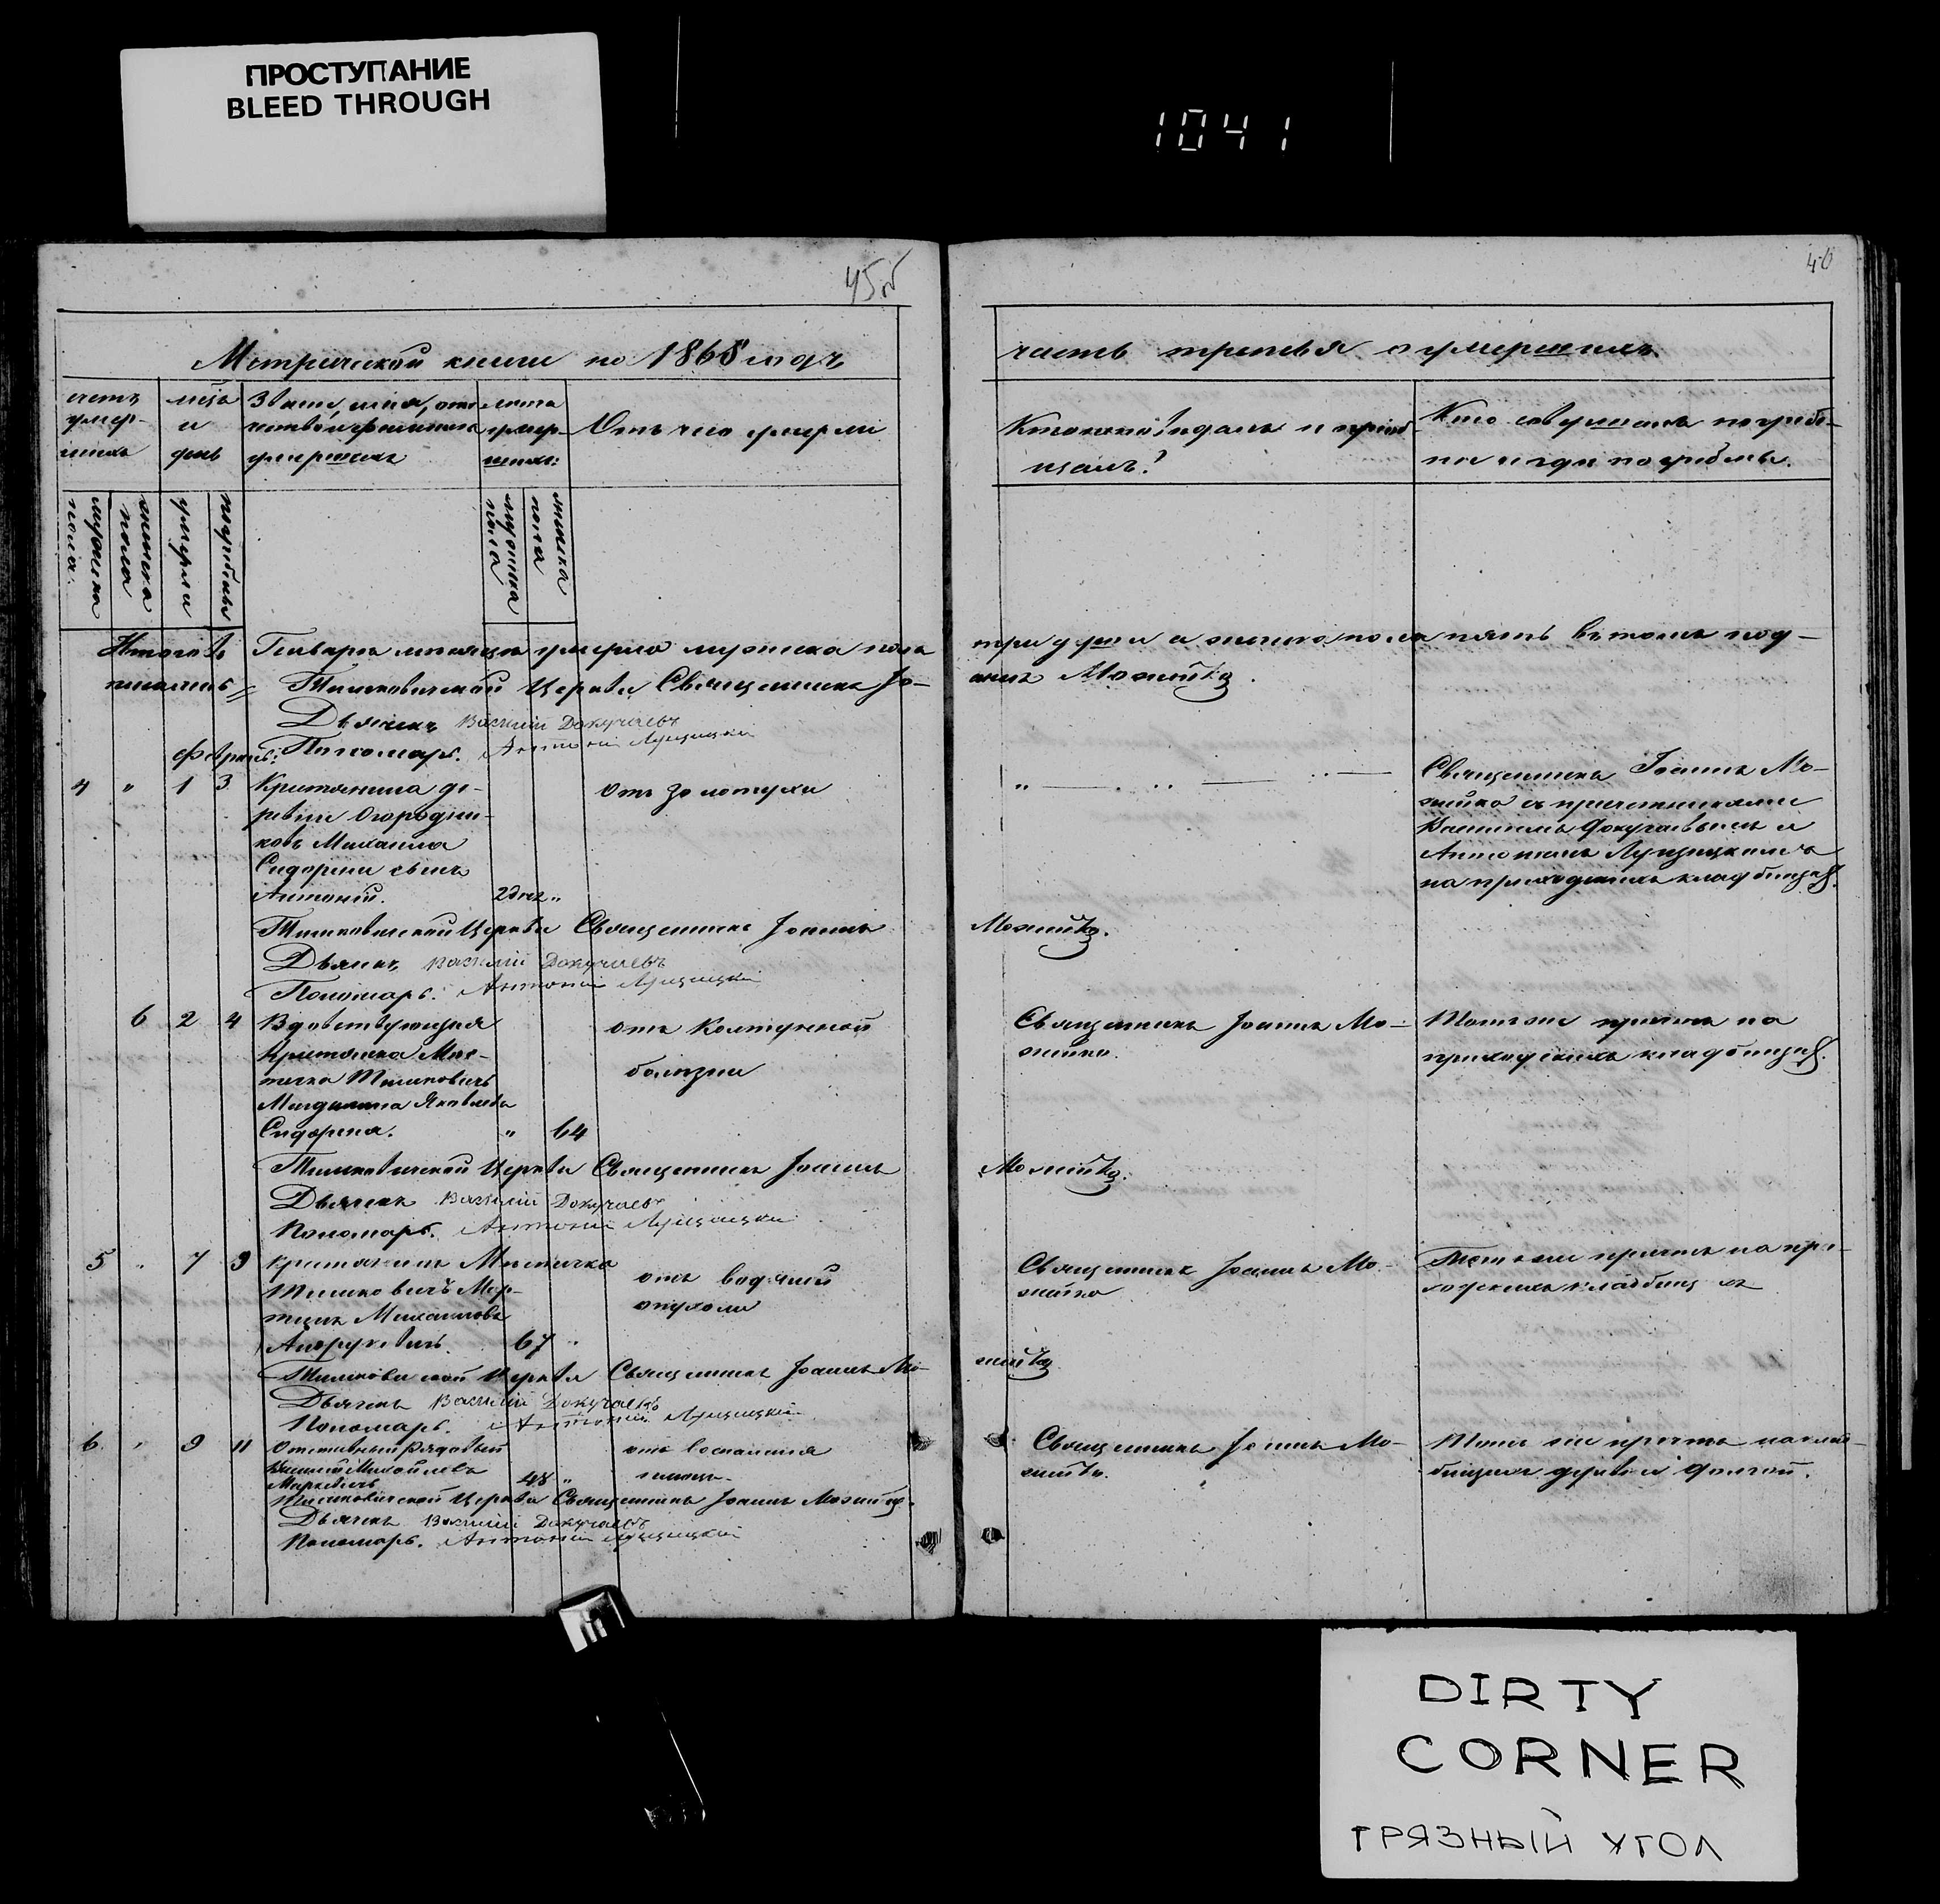 ПРОСТУПАНИЕ
BLEED THROUGH
1041
45об
46
Метрической книги на 1868 годъ
часть третья о умершихъ
счетъ умер-
шихъ
мѣсяцъ
и
день
Званіе, имя, отче-
ство и фамилія
умершихъ
лета
умер-
шихъ:
Отъ чего умерли
Кто исповѣдалъ и пріоб-
щалъ?
Кто совершалъ погребе-
ніе и гдѣ погребены.
мужеска
пола.
женска
пола
умерли
погребены
мужеска
пола
женска
пола
Итого въ Генварѣ месяцѣ умерло мужеска пола
три души а женска пола пять въ томъ под-
писались
Тимковичской Церкви Священникъ Іо-
аннъМожейко.
Дьячекъ Василій Докучаевъ
Пономарь. Антоній Лущицкій
Февраль:
4 " 1 3 Крестьянина де-
ревни Огородни-
ковъ Михаила
Сидорени сынъ
Антоній. 2 дня "
отъ золотухи
"
Священникъ Іоаннъ Мо-
жейко съ причетниками
Василіемъ Докучаевымъ и
Антоніемъ Лущицкимъ
на приходскихъ кладбищахъ.
Тимковичской Церкви Священникъ Іоаннъ
Можейко.
Дьячекъ Василій Докучаевъ
Пономарь. Антоній Лущицкій
6 2 4 Вдовствующая
крестьянка Мес-
течка Тимковичъ
Магдалина Яковлева
Сидореня. " 64
отъ колтунной
болезни
Священникъ Іоаннъ Мо-
жейко.
Тотъ же причтъ на
приходскихъ кладбищахъ.
Тимковичской Церкви Священникъ Іоаннъ
Можейко.
Дьячекъ Василій Докучаевъ
Пономарь. Антоній Лущицкій
5 " 7 9 Крестьянинъ Местечка
Тимковичъ Мар-
тинъ Михайловъ
67 "
отъ водяной
опухоли
Священникъ Іоаннъ Мо-
жейко
Тотъ же причтъ на при-
ходскихъ кладбищахъ
Тимковичской Церкви Священникъ Іоаннъ Мо-
жейко
Дьячекъ Василій Докучаевъ
Пономарь. Антоній Лущицкій
6. " 9 11 Отставный рядовый
Василій Михайловъ
Маркевичъ 48 "
отъ воспаленія
Священникъ Іоаннъ Мо-
жейко.
Тотъ же причтъ на клад-
бищахъ деревни
Тимковичской Церкви Священникъ Іоаннъ Можейко.
Дьячекъ Василій Докучаевъ
Пономарь. Антоній Лущицкій
DIRTY
CORNER
ГРЯЗНЫЙ УГОЛ